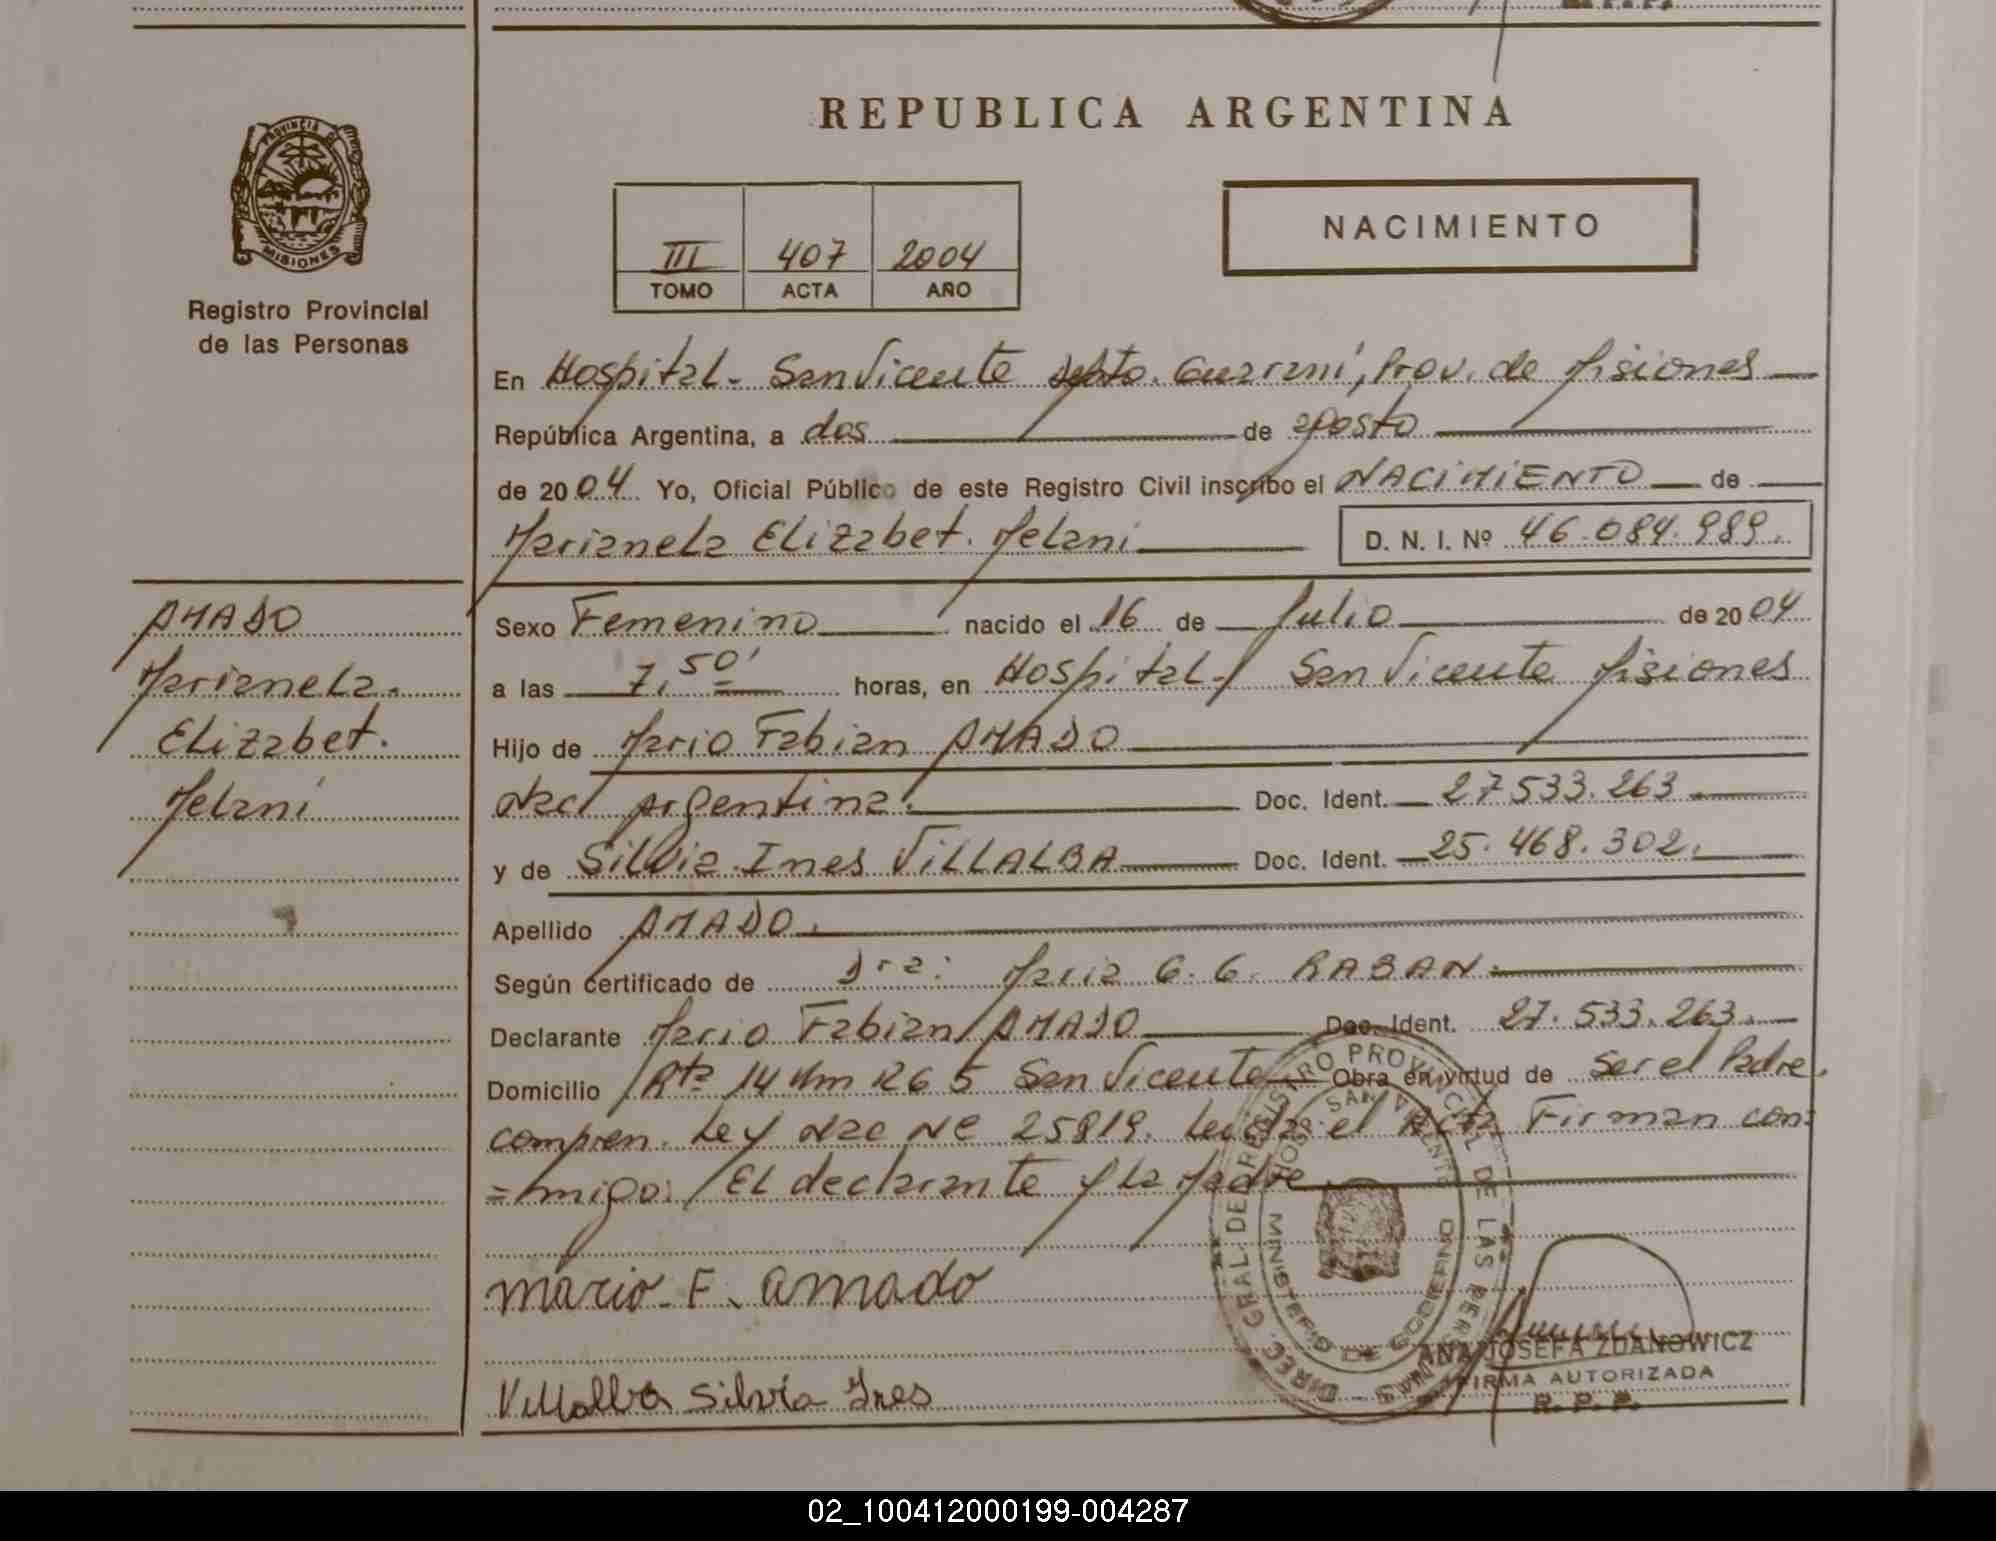 REPUBLICA ARGENTINA
PROVINCIA DE
MISIONES
Registro Provincial
de las Personas
III 407 2004
TOMO ACTA AÑO
NACIMIENTO
En Hospital - San Vicente Depto. Guaraní, Prov. de Misiones
República Argentina, a dos de agosto
de 2004 Yo, Oficial Público de este Registro Civil inscribo el NACIMIENTO de
Marianela Elizabet. Melani D. N. I. Nº 46.084.989.
AMADO
Marianela.
Elizabet.
Melani
Sexo Femenino nacido el 16 de Julio de 2004
a las 7,50' horas, en Hospital - San Vicente Misiones
Hijo de Mario Fabian AMADO
Nac. Argentina. Doc. Ident. 27533.263
y de Silvia Ines VILLALBA Doc. Ident. 25.468.302.
Apellido AMADO.
Según certificado de Dra: Maria G. G. RABAN.
Declarante Mario Fabian AMADO Doc. Ident. 27.533.263.
Domicilio Rta 14 Km 1265 San Vicente Obra en virtud de Ser el Padre.
compren. Ley Nac Nº 25819. Leida el Acta Firman con=
=migo: El declarante y la Madre
mario F. amado
Villalba Silvia Ines
DIREC. GRAL. DE REGISTRO PROVINCIAL DE LAS PERSONAS
HOSP. SAN VICENTE
MINISTERIO DE GOBIERNO
ANA JOSEFA ZDANOWICZ
FIRMA AUTORIZADA
R. P. P.
02_100412000199-004287